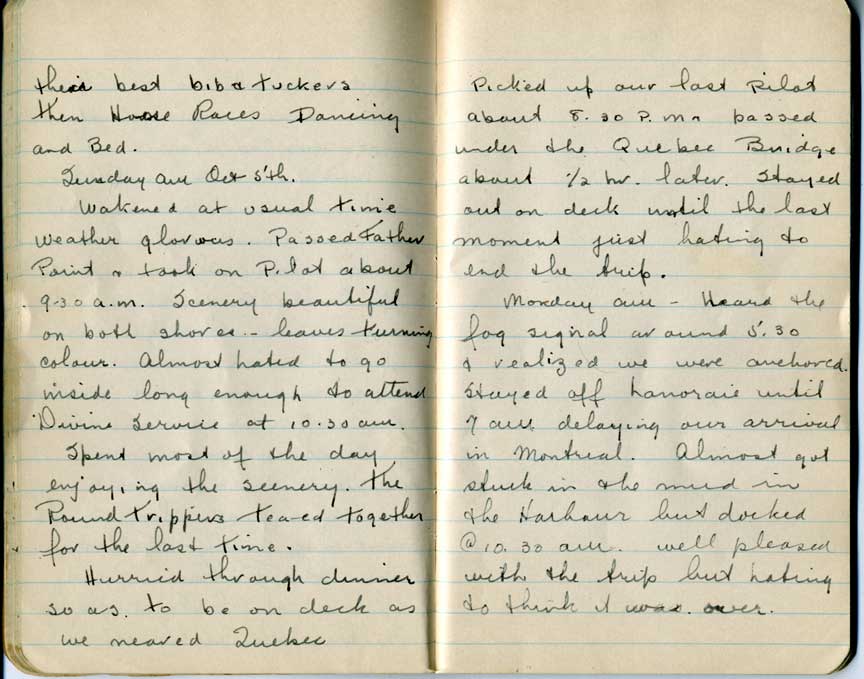 their best bib & tuckers
then Horse Races Dancing
and Bed.
Sunday am Oct 5'th.
Wakened at usual time
weather glorious. Passed Father
Point & took on Pilot about
9.30 a.m. Scenery beautiful
on both shores - leaves turning
colour. Almost hated to go
inside long enough to attend
Divine Service at 10.30 am.
Spent most of the day
enjoying the scenery. The
Round trippers tea-ed together
for the last time.
Hurried through dinner
so as to be on deck as
we neared Quebec
Picked up our last Pilot
about 8.30 P.M. passed
under the Quebec Bridge
about 1/2 hr. later. Stayed
out on deck until the last
moment just hating to
end the trip.
Monday am - Heard the
fog signal around 5.30
& realized we were anchored.
Stayed off Lanoraie until
7 am delaying our arrival
in Montreal. Almost got
stuck in the mud in
the Harbour but docked
@ 10.30 am. well pleased
with the trip but hating
to think it was over.